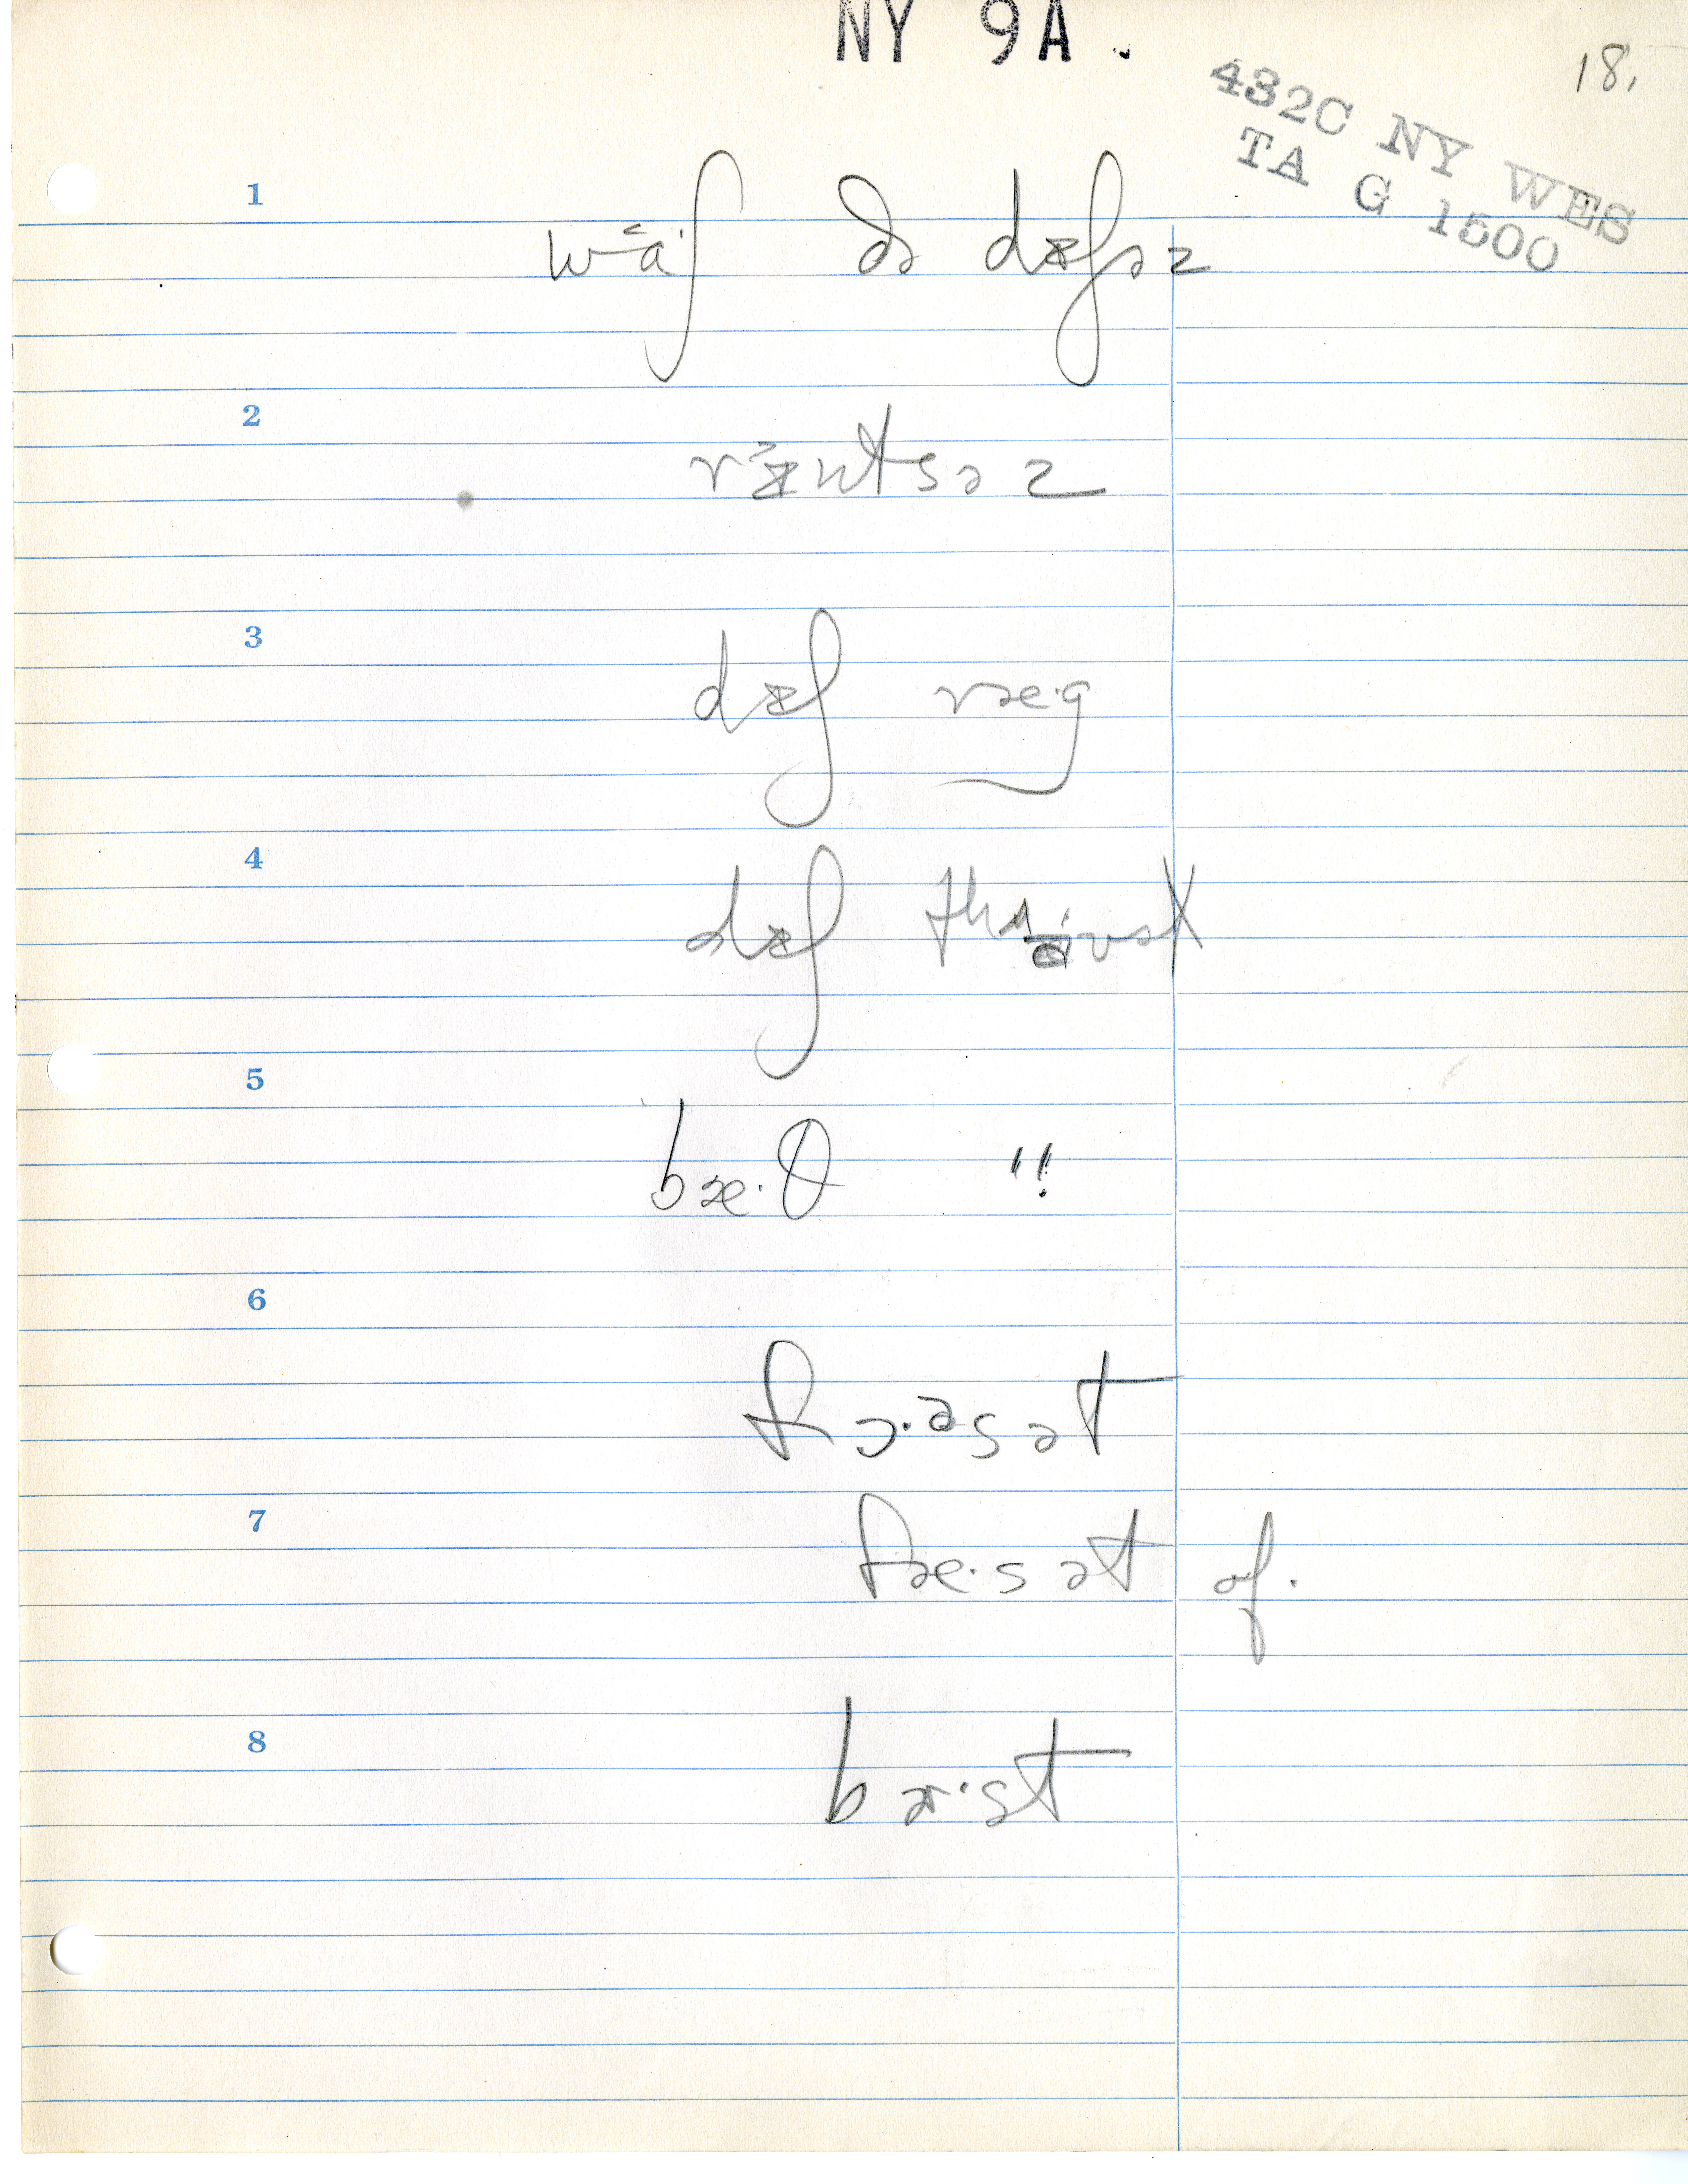 NY 9A.
18.
432C NY WES
TA G 1500
1
wɑ·ʃ ðə dɪʃəz
2
rɪntsəz
3
dɪʃ ræ·g
4
dɪʃ
5
bæ·θ "
6
fɔ·əsət
7
fæ·sət
8
bæ·st